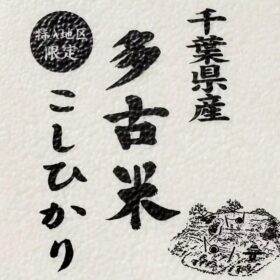 千葉県産
多古米
こしひかり
特A地区
限定